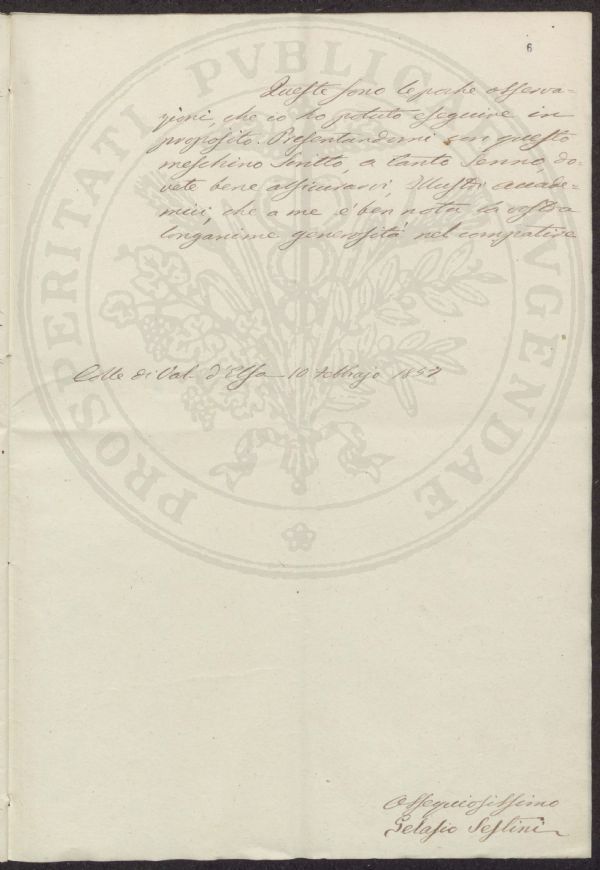 6
Queste sono le poche osserva-
zioni, che io ho potuto eseguire in
proposito. Presentandomi con questo
meschino Scritto, a tanto Senno, do-
vete bene assicurarvi, Illustri Accade-
mici, che a me è ben nota la vostra
longanime generosità nel compatire
Colle di Val d'Elsa 10 Febbrajo 1857
Ossequiosissimo
Gelasio Sestini
PROSPERITATI PVBLICAE AVGENDAE